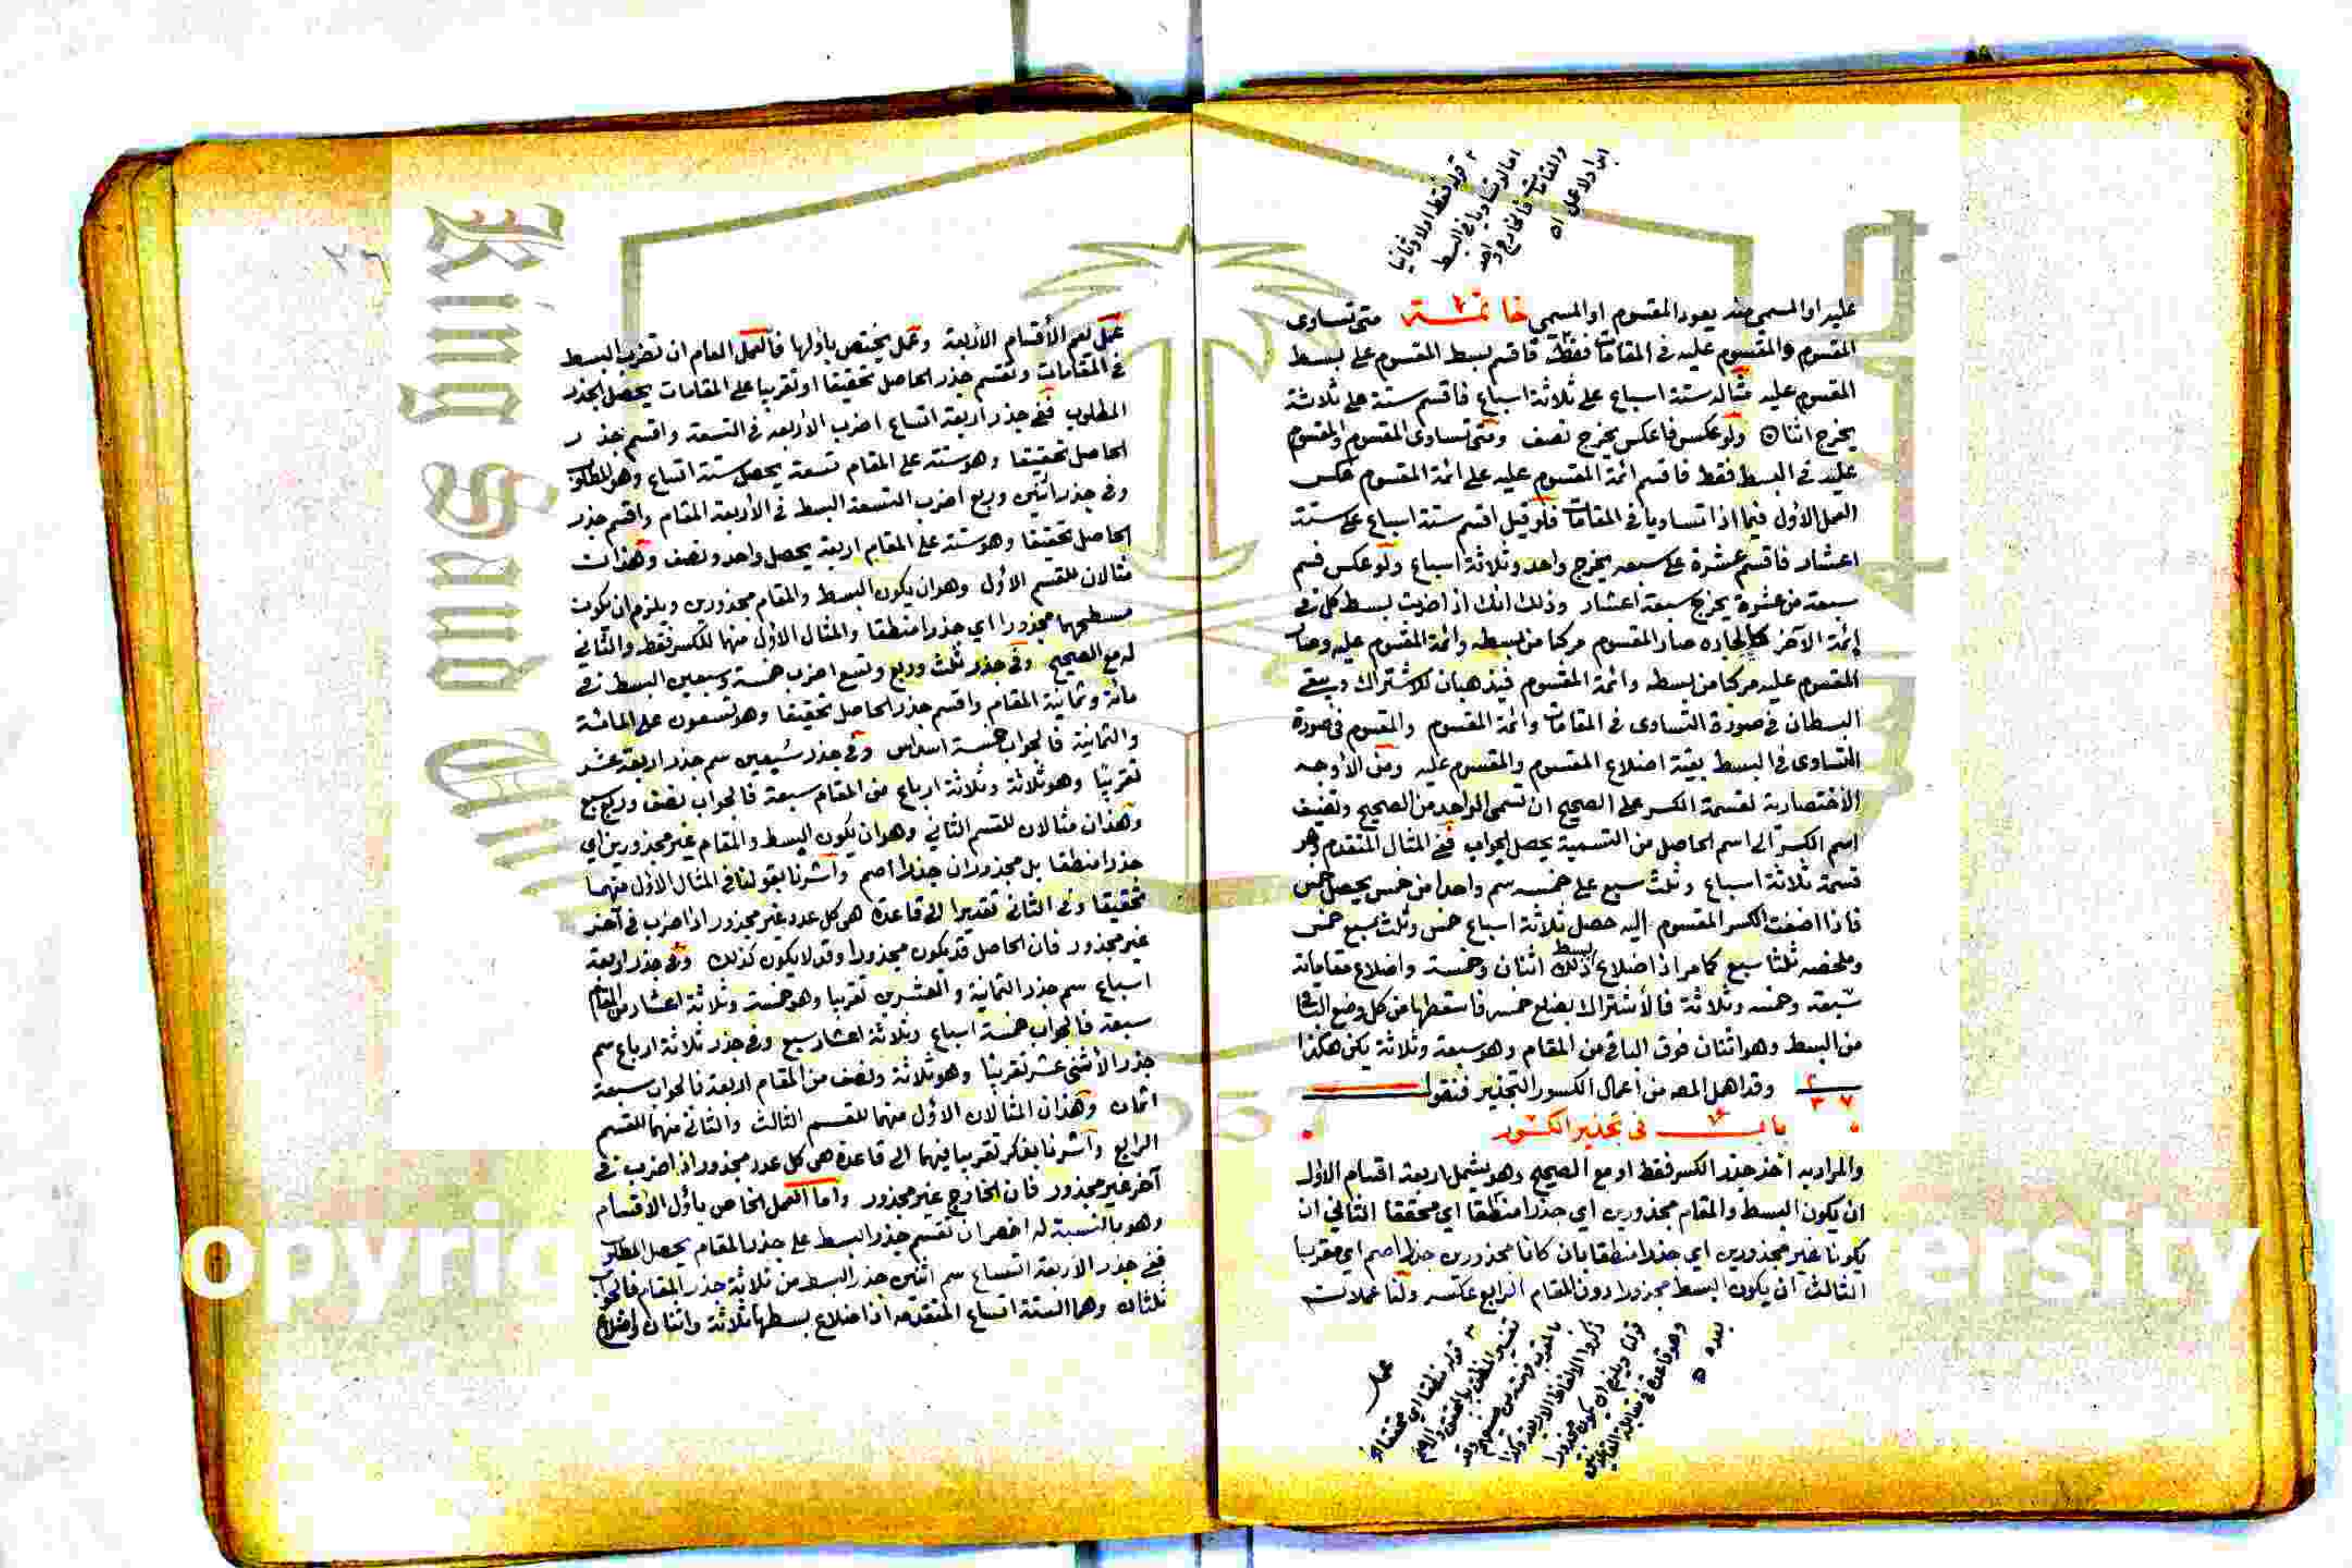 قوله فقط اولا وثانيا
اما لو تساويا في البسط
والمقامات فالخارج واحد
ابدا ولا عمل اه
عليه او المسمى منه يعود المقسوم او المسمى خاتمة متى تساوى
المقسوم والمقسوم عليه في المقامات فقط فاقسم بسط المقسوم على بسط
المقسوم عليه مثاله ستة اسباع على ثلاثة اسباع فاقسم ستة على ثلاثة
يخرج اثنان ولو عكس فاعكس يخرج نصف ومتى تساوى المقسوم والمقسوم
عليه في البسط فقط فاقسم ائمة المقسوم عليه على ائمة المقسوم عكس
العمل الاول فيما اذا تساويا في المقامات فلو قيل اقسم ستة اسباع على ستة
اعشار فاقسم عشرة على سبعه يخرج واحد وثلاثة اسباع ولو عكس فسم
سبعة من عشرة يخرج سبعة اعشار وذلك انك اذا ضربت بسط كل في
ائمة الآخر صار المقسوم مركبا من بسطه وائمة المقسوم عليه وصار
المقسوم عليه مركبا من بسطه وائمة المقسوم فيذهبان للاشتراك ويبقى
البسطان في صورة التساوى في المقامات وائمة المقسوم والمقسوم في صورة
التساوى في البسط بقية اضلاع المقسوم والمقسوم عليه ومن الاوجه
الاختصارية لقسمة الكسر على الصحيح ان تسمى الواحد من الصحيح وتضيف
اسم الكسر الى اسم الحاصل من التسمية يحصل الجواب ففي المثال المتقدم وهو
قسمة ثلاثة اسباع وثلث سبع على خمسه سم واحدا من خمس يحصل خمس
فاذا اضفت الكسر المقسوم اليه حصل ثلاثة اسباع خمس وثلث سبع خمس
وملخصه ثلثا سبع كما مر اذ اضلاع بسط ذلك اثنان وخمسة واضلاع مقاماته
سبعة وخمسه وثلاثة فالاشتراك بضلع خمسه فاسقطها من كل وضع الباقى
من البسط وهو اثنان فوق الباقي من المقام وهو سبعة وثلاثة يكن هكذا
٢
٣ ٧
وقد اهمل المصه من اعمال الكسور التجذير فنقول
باب في تجذير الكسور
والمراد به اخذ جذر الكسر فقط او مع الصحيح وهو يشمل اربعة اقسام الاول
ان يكون البسط والمقام مجذورين اي جذرا منطقا اي محققا الثاني ان
يكونا غير مجذورين اي جذرا منطقا بان كانا مجذورين جذرا اصم اي مقربا
الثالث ان يكون البسط مجذورا دون المقام الرابع عكسه ولنا عملان
عمل
قوله منطقا اي محققا
تفسير المنطق بالمحقق والاصم
بالمقرب
ذكروا الالفاظ الاربعة وكذا
قولنا ويلزم ان يكون مجذورا
وهو قاعدة
بعده
عمل لعم الأقسام الأربعة وعمل يختص باولها فالعمل العام ان تضرب البسط
في المقامات وتقسم جذر الحاصل تحقيقا او تقريبا على المقامات يحصل الجذر
المطلوب ففي جذر اربعة اتساع اضرب الأربعه في التسعة واقسم جذر
الحاصل تحقيقا وهو ستة على المقام تسعة يحصل ستة اتساع وهو المطلوب
وفي جذر اثنين وربع اضرب التسعة البسط في الأربعة المقام واقسم جذر
الحاصل تحقيقا وهو ستة على المقام اربعة يحصل واحد ونصف وهذان
مثالان للقسم الاول وهو ان يكون البسط والمقام مجذورين ويلزم ان يكون
مسطحهما مجذورا اي جذرا منطقا والمثال الاول منهما للكسر فقط والثاني
له مع الصحيح وفي جذر ثلث وربع وتسع اضرب خمسة وسبعين البسط في
مائة وثمانية المقام واقسم جذر الحاصل تحقيقا وهو تسعون على المائة
والثمانية فالجواب خمسة اسداس وفي جذر سبعين سم جذر اربعة عشر
تقريبا وهو ثلاثة وثلاثة ارباع من المقام سبعة فالجواب نصف وربع سبع
وهذان مثالان للقسم الثاني وهو ان يكون البسط والمقام غير مجذورين اي
جذرا منطقا بل مجذوران جذرا اصم واشرنا بقولنا في المثال الاول منهما
تحقيقا وفي الثاني تقديرا الى قاعدة هي كل عدد غير مجذور اذا ضرب في آخر
غير مجذور فان الحاصل قد يكون مجذورا وقد لا يكون كذلك وفي جذر اربعة
اسباع سم جذر الثمانية والعشرين تقريبا وهو خمسة وثلاثة اعشار من المقام
سبعة فالجواب خمسة اسباع وثلاثة اعشار سبع وفي جذر ثلاثة ارباع سم
جذر الأثنى عشر تقريبا وهو ثلاثة ونصف من المقام اربعة فالجواب سبعة
اثمان وهذان المثالان الاول منهما للقسم الثالث والثاني منهما للقسم
الرابع واشرنا بذكر تقريبا فيهما الى قاعدة هي كل عدد مجذور اذا ضرب في
آخر غير مجذور فان الخارج غير مجذور واما العمل الخاص باول الاقسام
وهو بالنسبة له اخصر ان تقسم جذر البسط على جذر المقام يحصل المطلوب
ففي جذر الاربعة اتساع سم اثنين جذر البسط من ثلاثة جذر المقام فالجواب
ثلثان وهما الستة اتساع المتقدمه اذ اضلاع بسطها ثلاثة واثنان واضلاع
opyrig
ersity
King Saud U